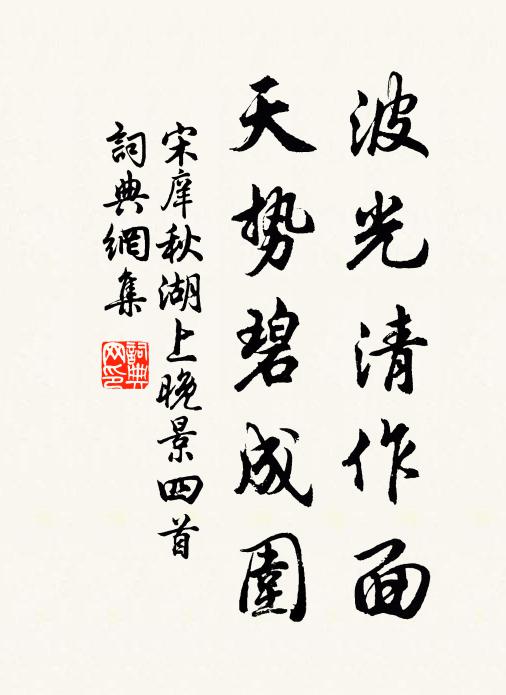 波光清作面
天势碧成圍
宋庠秋湖上晚景四首
詞典網集
詞典网印